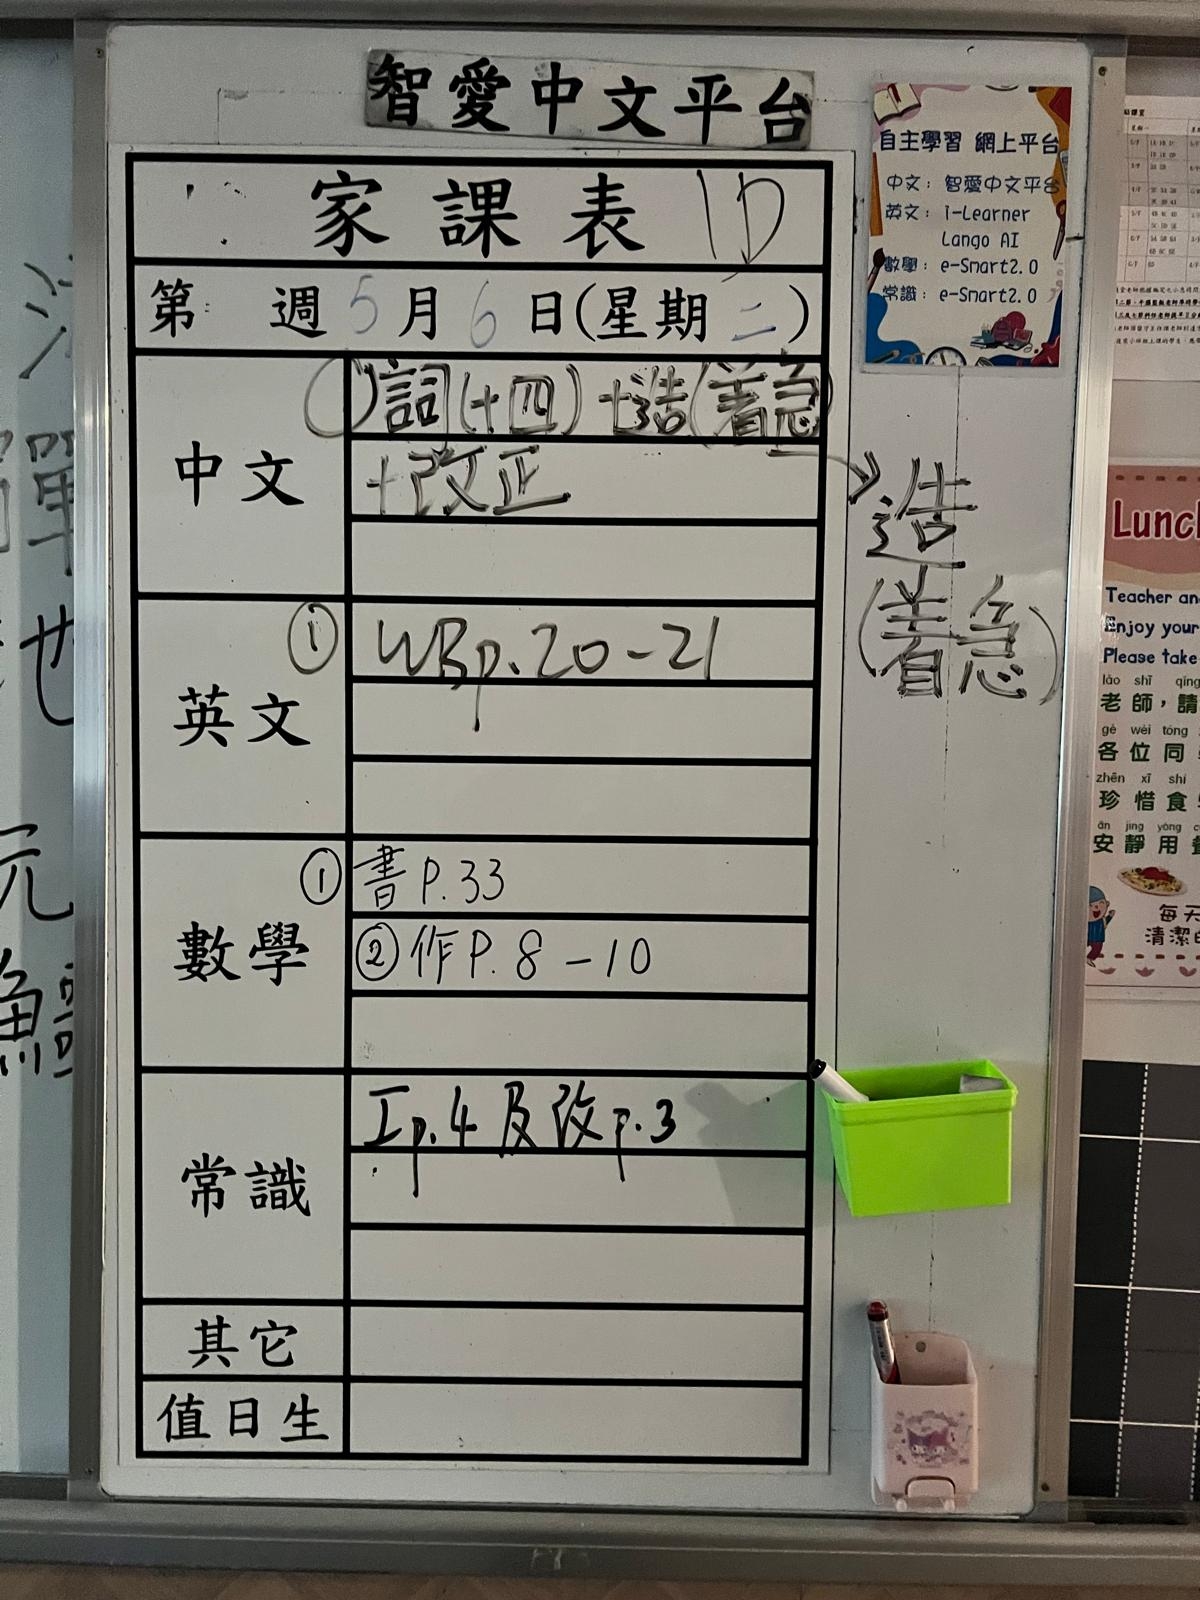 智愛中文平台
家課表 1D
第 週 5月 6日(星期二)
中文
①詞(十四)+造(着急)
+改正
造
(着急)
英文
① WBp.20-21
數學
① 書P.33
② 作P.8-10
常識
工p.4及改p.3
其它
值日生
自主學習 網上平台
中文: 智愛中文平台
英文: i-Learner
Lango AI
數學: e-Smart2.0
常識: e-Smart2.0
Lunc
Teacher an
Enjoy your
Please take
lǎo shī qǐng
老師,請
gè wèi tóng
各位同
zhēn xī shí
珍惜食
ān jìng yòng
安靜用
每天
清潔
單
也
元
魚